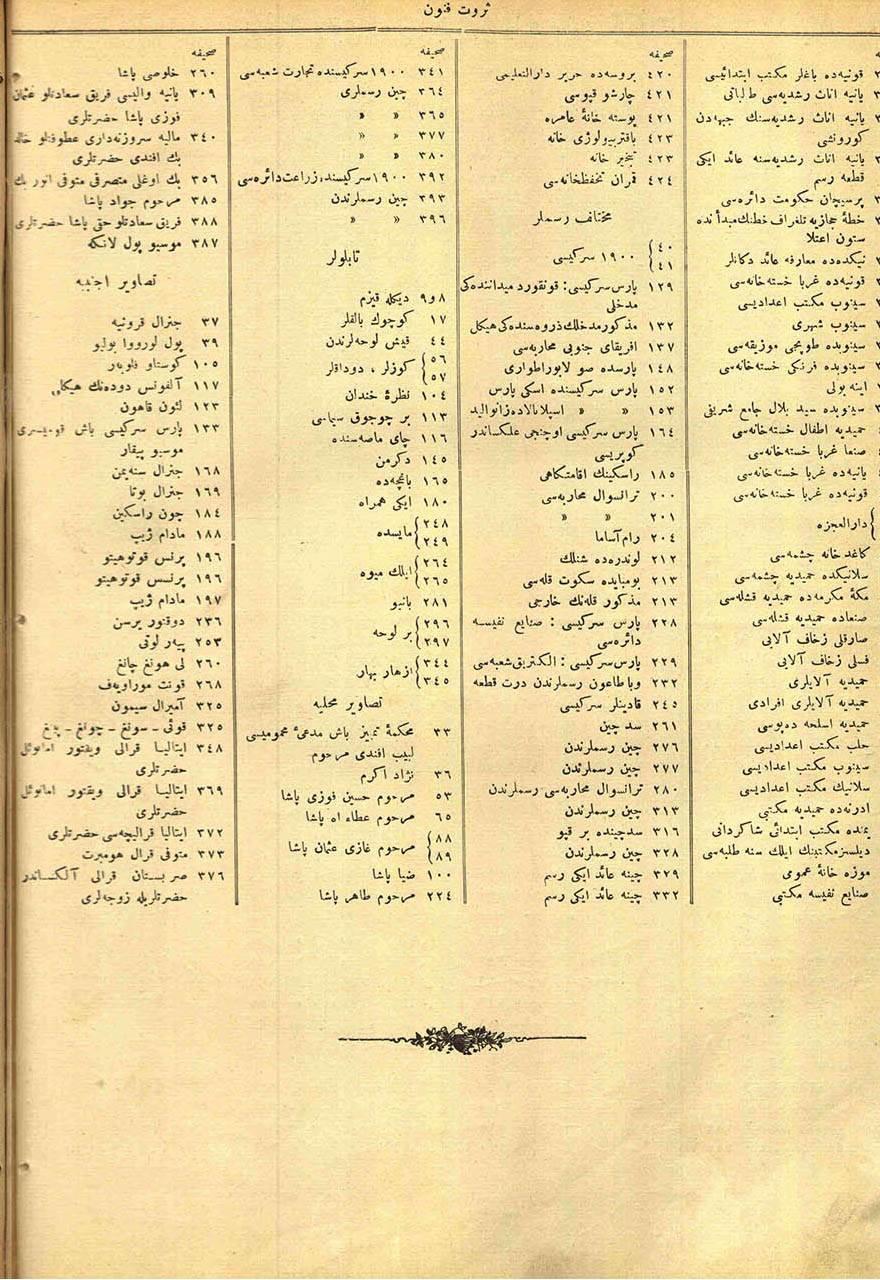 ثروت فنون
قونیه‌ده باغلر مكتب ابتدائیسی
یانیه اناث رشدیه‌سی طالباتی
یانیه اناث رشدیه‌سنك جبهه‌دن
كورونشی
یانیه اناث رشدیه‌سنه عائد ایكی
قطعه رسم
پرسیچان حكومت دائره‌سی
خطهٔ حجازیه تلغراف خطنك مبدأنده
ستون اعتلا
نیكده‌ده معارفه عائد دكانلر
قونیه‌ده غربا خسته‌خانه‌سی
سینوب مكتب اعدادیسی
سینوب شهری
سینوبده طوپجی موزیقه‌سی
سینوبده فرنكی خسته‌خانه‌سی
اینه بولی
سینوبده سید بلال جامع شریفی
حمیدیه اطفال خسته‌خانه‌سی
صنعا غربا خسته‌خانه‌سی
یانیه‌ده غربا خسته‌خانه‌سی
قونیه‌ده غربا خسته‌خانه‌سی
دارالعجزه
كاغدخانه چشمه‌سی
سلانیكده حمیدیه چشمه‌سی
مكهٔ مكرمه‌ده حمیدیه قشله‌سی
صنعاده حمیدیه قشله‌سی
صارقلی زخاف آلایی
فسلی زخاف آلایی
حمیدیه آلایلری
حمیدیه آلایلری افرادی
حمیدیه اسلحه ده‌پوسی
حلب مكتب اعدادیسی
سینوب مكتب اعدادیسی
سلانیك مكتب اعدادیسی
ادرنه‌ده حمیدیه مكتبی
یمنده مكتب ابتدائی شاكردانی
دیلسزمكتبنك ایلك سنه طلبه‌سی
موزه خانهٔ عمومی
صنایع نفیسه مكتبی
صحیفه
٤٢٠ بروسه‌ده حریر دارالتعلیمی
٤٢١ چارشو قپوسی
٤٢١ پوسته خانهٔ عامره
٤٢٣ باقتریولوژی خانه
٤٢٣ تبخیر خانه
٤٢٤ قمران تحفظخانه‌سی
مختلف رسملر
٤٠
٤١ } ١٩٠٠ سركیسی
١٢٩ پارس سركیسی: قونقورد میداننده‌كی
مدخلی
١٣٢ مذكور مدخلك ذروه‌سنده‌كی هیكل
١٣٧ افریقای جنوبی محاربه‌سی
١٤٨ پارسده صو لابوراطواری
١٥٢ پارس سركیسنده اسكی پارس
١٥٣ » » اسپلانالاده‌زانوالید
١٦٤ پارس سركیسی اوچنجی علكساندر
كوپریسی
١٨٥ راسكینك اقامتكاهی
٢٠٠ ترانسوال محاربه‌سی
٢٠١ » »
٢٠٤ رام‌آساما
٢١٢ لوندره‌ده شنلك
٢١٣ بومبایده سكوت قله‌سی
٢١٣ مذكور قله‌نك خارجی
٢٢٨ پارس سركیسی : صنایع نفیسه
دائره‌سی
٢٢٩ پارس سركیسی : الكتریق شعبه‌سی
٢٣٢ وبا طاعون رسملرندن درت قطعه
٢٤٥ قادینلر سركیسی
٢٦١ سد چین
٢٧٦ چین رسملرندن
٢٧٧ چین رسملرندن
٢٨٠ ترانسوال محاربه‌سی رسملرندن
٣١٣ چین رسملرندن
٣١٦ سدچینده بر قپو
٣٢٨ چین رسملرندن
٣٢٩ چینه عائد ایكی رسم
٣٣٢ چینه عائد ایكی رسم
صحیفه
٣٤١ ١٩٠٠ سركیسنده تجارت شعبه‌سی
٣٦٤ چین رسملری
٣٦٥ » »
٣٧٧ » »
٣٨٠ » »
٣٩٢ ١٩٠٠ سركیسنده زراعت دائره‌سی
٣٩٣ چین رسملرندن
٣٩٦ » »
تابلولر
٨ و٩ دیكله قیزم
١٧ كوچوك بالقلر
٤٤ قیش لوحه‌لرندن
٥٦
٥٧ } كوزلر ، دوداقلر
١٠٤ نظرهٔ خندان
١١٣ بر چوجوق سیماسی
١١٦ چای ماصه‌سنده
١٤٥ دكرمن
١٦٥ باغچه‌ده
١٨٠ ایكی همراه
٢٤٨
٢٤٩ } مایسده
٢٦٤
٢٦٥ } ایلك میوه
٢٨١ بانیو
٢٩٦
٢٩٧ } بر لوحه
٣٤٤
٣٤٥ } ازهار بهار
تصاویر محلیه
٣٣ محكمهٔ تمییز باش مدعئ عمومیسی
لبیب افندی مرحوم
٣٦ نژاد اكرم
٥٣ مرحوم حسین فوزی پاشا
٦٥ مرحوم عطاء الله پاشا
٨٨
٨٩ } مرحوم غازی عثمان پاشا
١٠٠ ضیا پاشا
٢٢٤ مرحوم طاهر پاشا
صحیفه
٢٦٠ خلوصی پاشا
٣٠٩ یانیه والیسی فریق سعادتلو عثمان
فوزی پاشا حضرتلری
٣٤٠ مالیه سروزنه‌داری عطوفتلو خالد
بك افندی حضرتلری
٣٥٦ بك اوغلی متصرفی متوفی انور بك
٣٨٥ مرحوم جواد پاشا
٣٨٨ فریق سعادتلو حقی پاشا حضرتلری
٣٨٧ موسیو پول لانكه
تصاویر اجنبیه
٣٧ جنرال قرونیه
٣٩ پول لورووا بولیو
١٠٥ كوستاو فلوبه‌ر
١١٧ آلفونس دوده‌نك هیكلی
١٢٣ لئون قاهون
١٣٣ پارس سركیسی باش قومیسری
موسیو پیقار
١٦٨ جنرال سنه‌یمن
١٦٩ جنرال بوتا
١٨٤ جون راسكین
١٨٨ مادام ژیپ
١٩٦ پرنس قوتوهیتو
١٩٦ پرنسس قوتوهیتو
١٩٧ مادام ژیپ
٢٣٦ دوقتور برسن
٢٥٣ پیه‌ر لوتی
٢٦٠ لی هونغ چانغ
٢٦٨ قونت موراویه‌ف
٣٢٥ آمیرال سیمون
٣٢٥ قوئی ـ سونغ ـ چونغ ـ ینغ
٣٤٨ ایتالیا قرالی ویقتور امانوئل
حضرتلری
٣٦٩ ایتالیا قرالی ویقتور امانوئل
حضرتلری
٣٧٢ ایتالیا قرالیچه‌سی حضرتلری
٣٧٣ متوفی قرال هومبرت
٣٧٦ صربستان قرالی آلكساندر
حضرتلریله زوجه‌لری